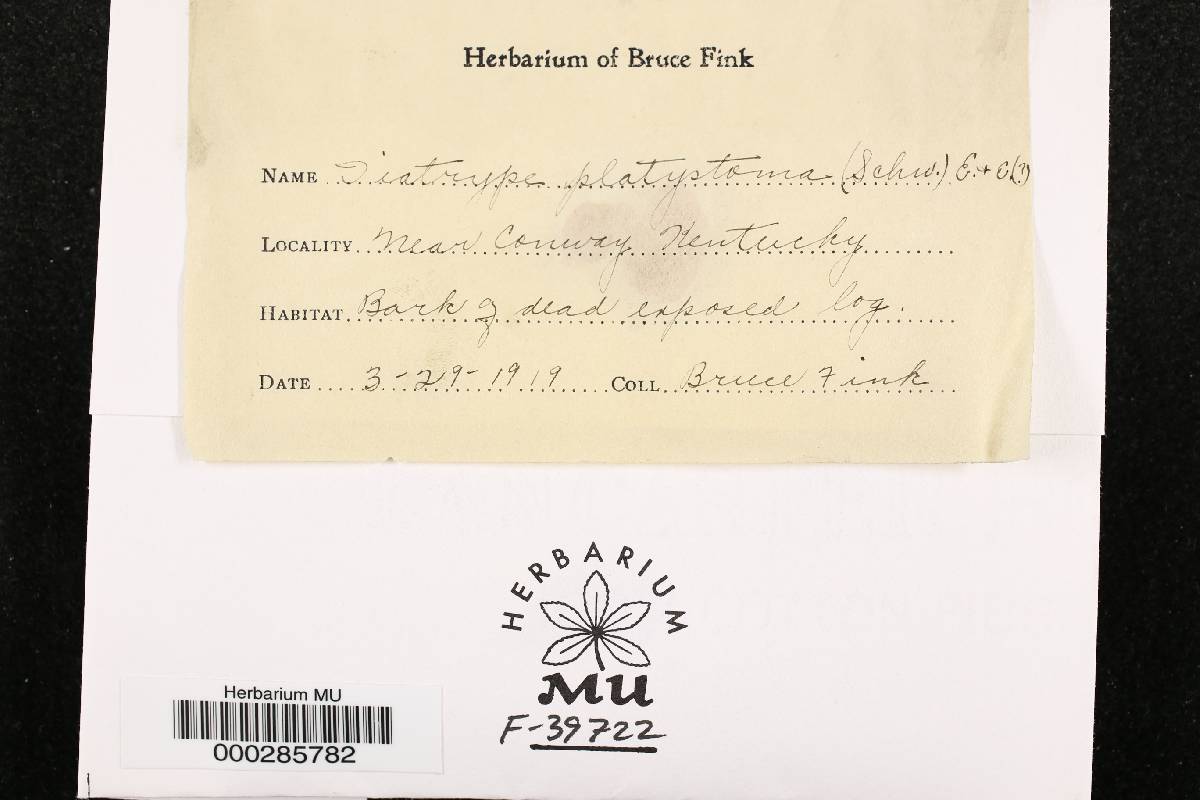 Herbarium of Bruce Fink
NAME Diatrype platystoma (Schw.) E. + E (?)
LOCALITY Near Conway Kentucky
HABITAT Bark of dead exposed log.
DATE 3-29-1919 COLL Bruce Fink
HERBARIUM
MU
F-39722
Herbarium MU
000285782